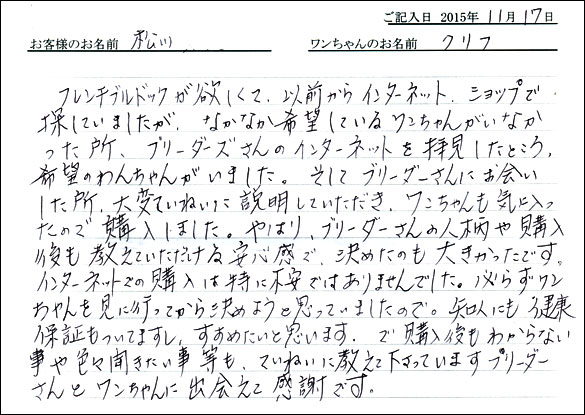 ご記入日 2015年 11月 17日
お客様のお名前 松川 ワンちゃんのお名前 クリフ
フレンチブルドックが欲しくて、以前からインターネット、ショップで
探していましたが、なかなか希望しているワンちゃんがいなか
った所、ブリーダーズさんのインターネットを拝見したところ、
希望のわんちゃんがいました。そしてブリーダーさんにお会い
した所、大変ていねいに説明していただき、ワンちゃんも気に入っ
たので購入しました。やはり、ブリーダーさんの人柄や購入
後も教えていただける安心感で、決めたのも大きかったです。
インターネットでの購入は特に不安ではありませんでした。必らずワン
ちゃんを見に行ってから決めようと思っていましたので。知人にも健康
保証もついてますし、すすめたいと思います。で購入後もわからない
事や色々聞きたい事等も、ていねいに教えて下さっていますブリーダー
さんとワンちゃんに出会えて感謝です。